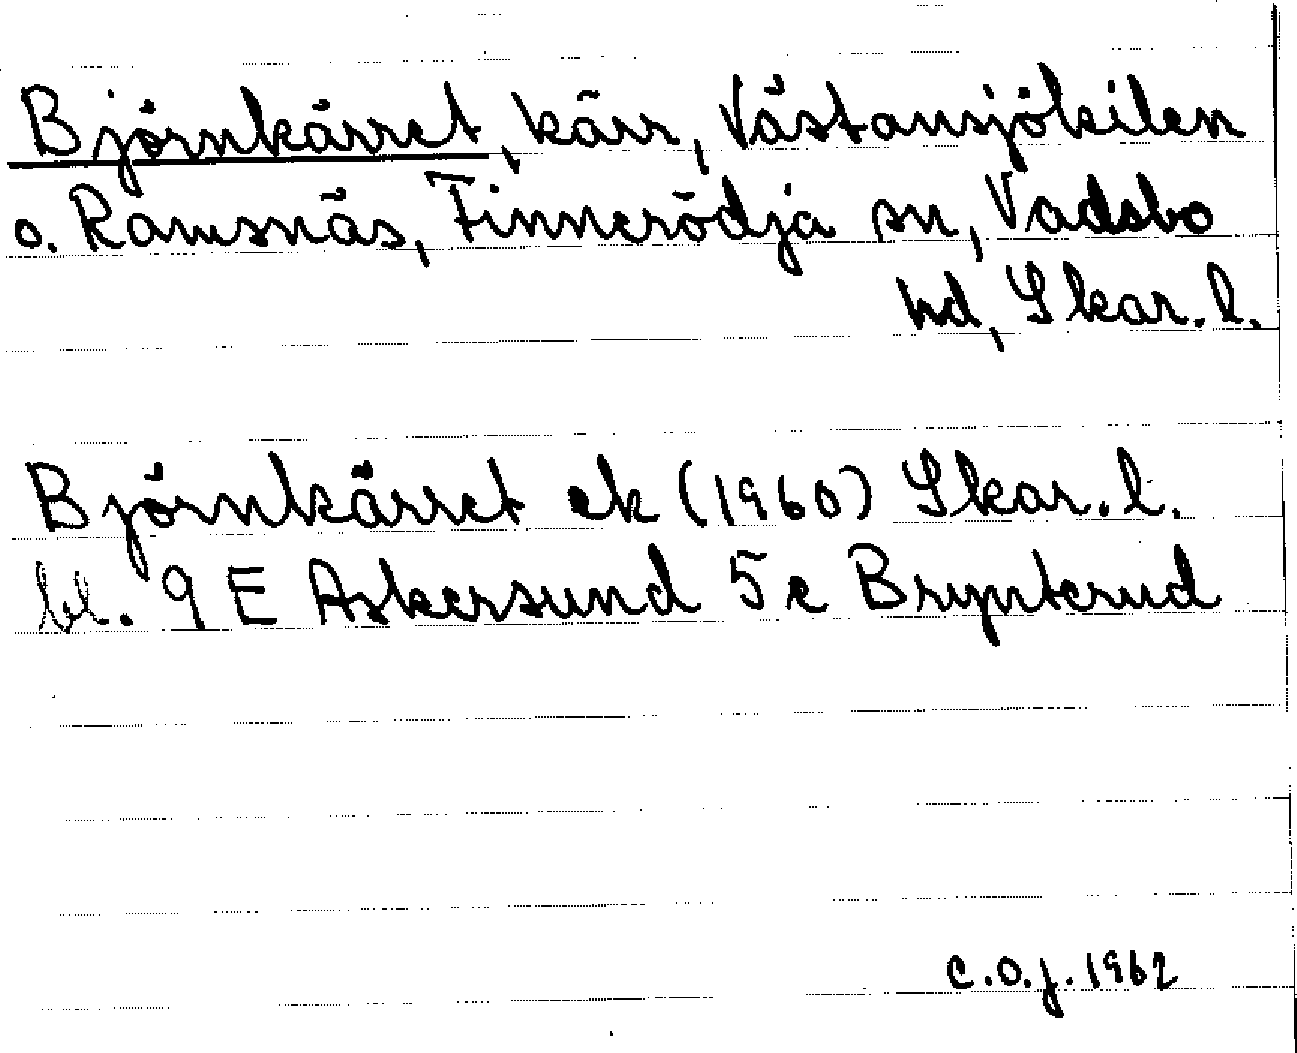 Björnkärret, kärr, Västansjökilen
o. Ramsnäs, Finnerödja sn, Vadsbo
hd, Skar. l.
Björnkärret ek (1960) Skar. l.
bl. 9 E Askersund 5 e Brynterud
C.O.J. 1962